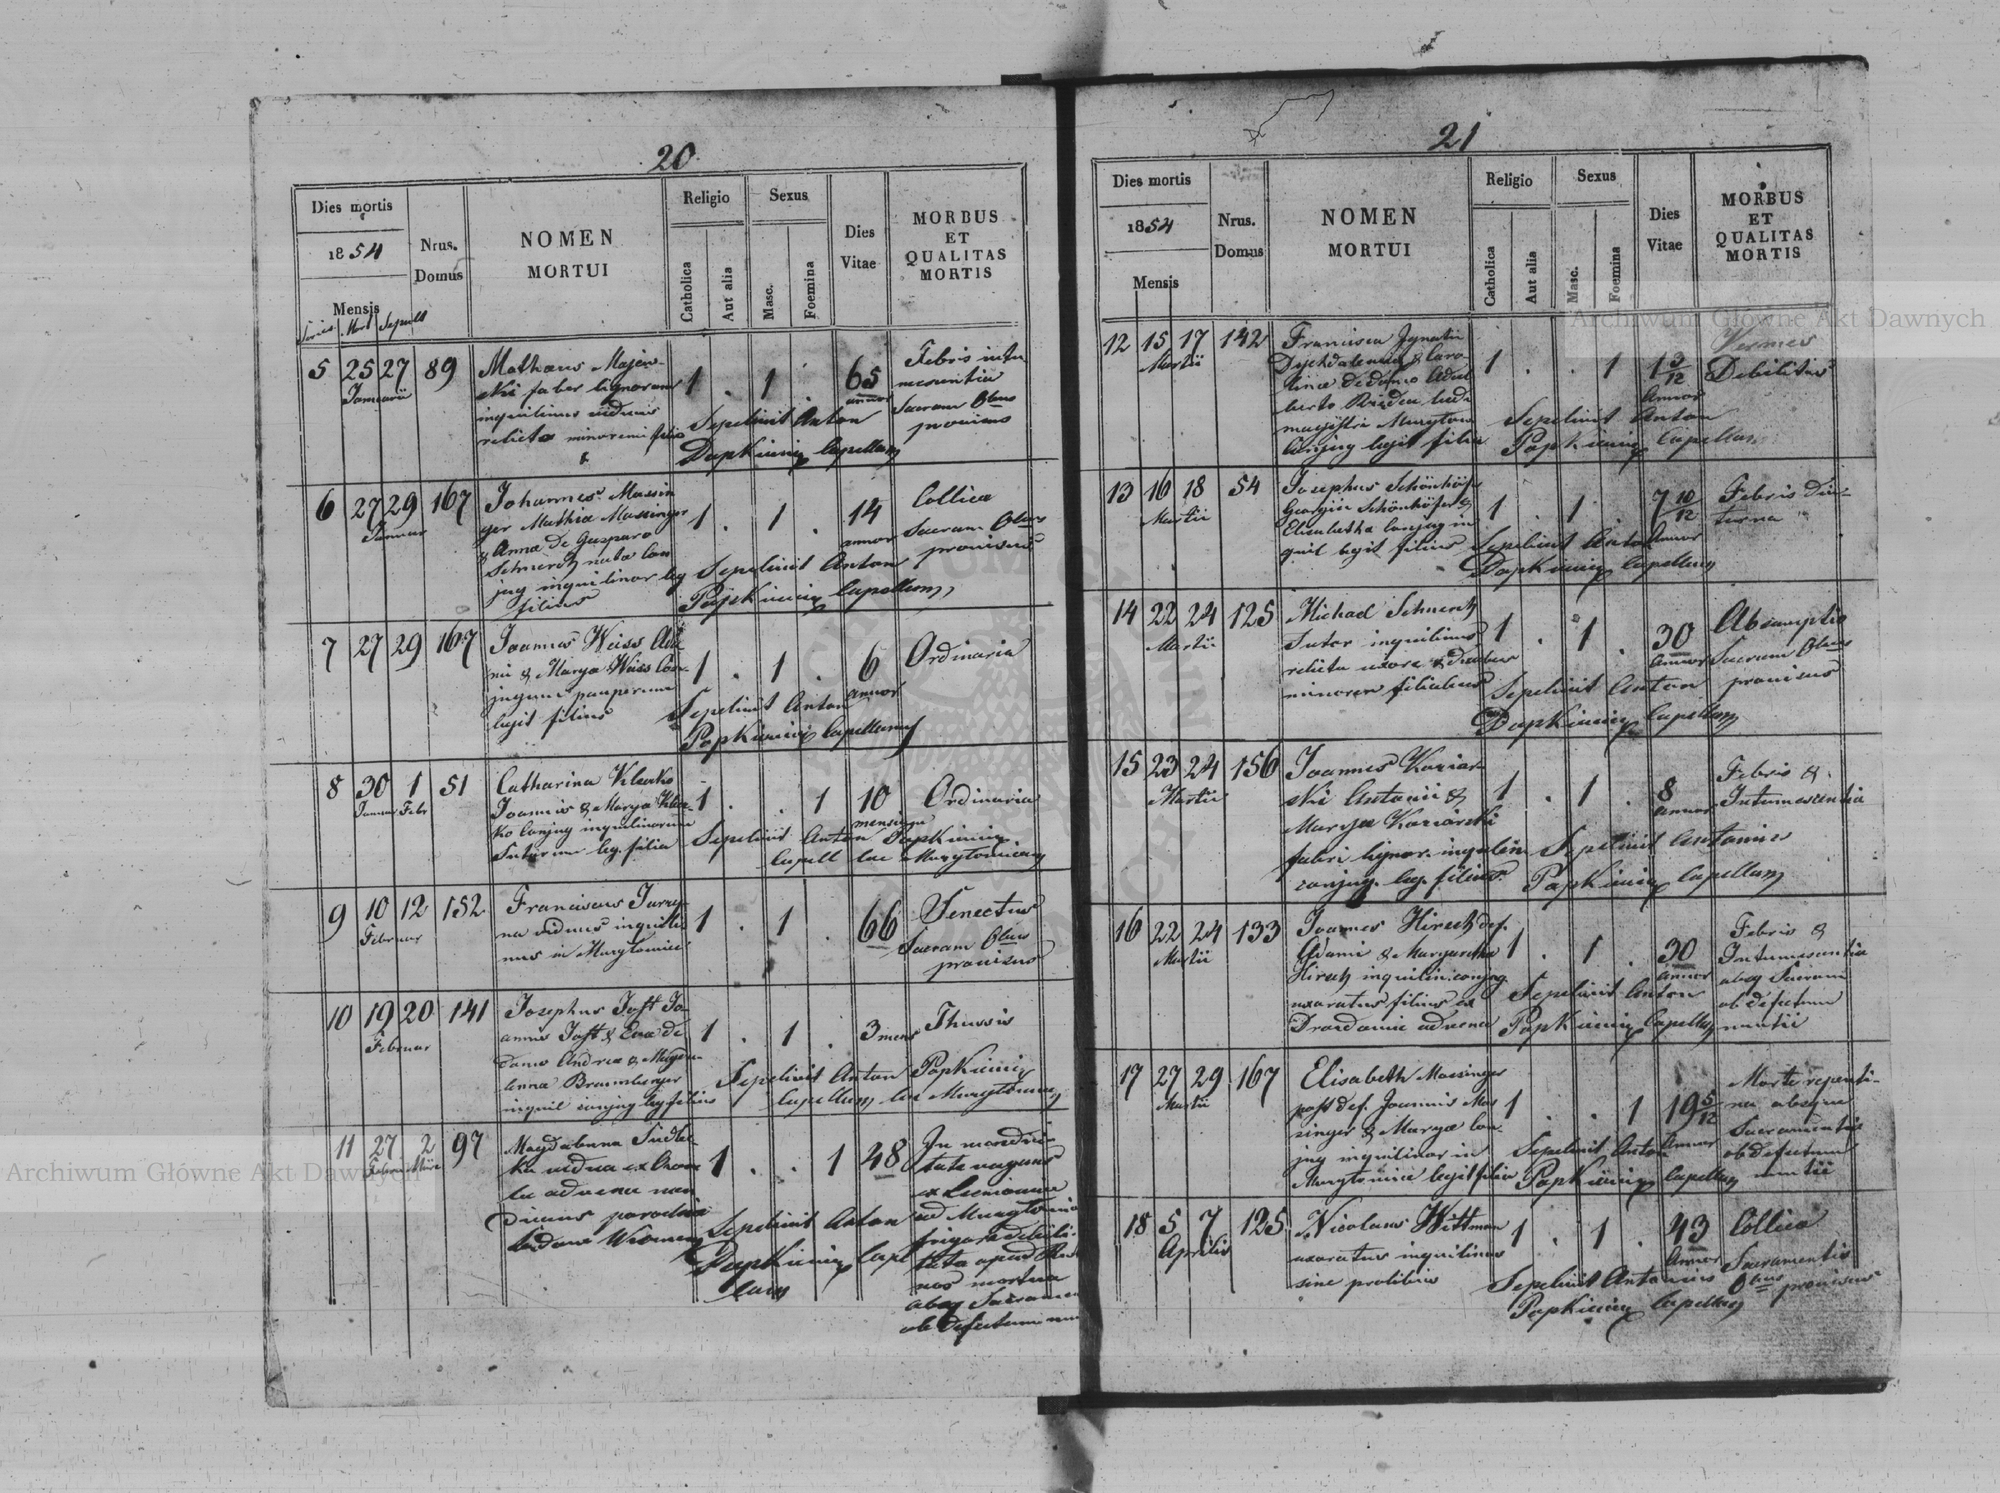 20
Dies mortis
1854
Mensis
Series Mort Sepult
Nrus.
Domus
NOMEN
MORTUI
Religio
Catholica
Aut alia
Sexus
Masc.
Foemina
Dies
Vitae
MORBUS
ET
QUALITAS
MORTIS
5 25 27 89
Januarii
Mathaeus Majew-
ski faber lignorum
inquilinus viduus
relicto minorenni filio
1 . 1 . 65
annor
Febris intu
mescentia
Sacram Obus
provisus
Sepelivit Anton
Papkiewicz Capellan
6 27 29 167
Januar
Johannes Massin
ger Mathiae Massinger
& Anna de Gasparo
Schnerch nata con
jug inquilinor leg
filius
1 . 1 . 14
annor
Collica
Sacram Obus
provisus
Sepelivit Anton
Papkiewicz Capellan
7 27 29 167
Joannes Weiss Ada
mi & Marya Weiss Con-
jugum pauperum
legit filius
1 . 1 . 6
annor
Ordinaria
Sepelivit Anton
Papkiewicz Capellan
8 30 1 51
Januar Febr
Catharina Klecko
Joannis & Marya Klec-
ko conjug inquilinorum
Sutorum leg. filia
1 . . 1 10
mensium
Ordinaria
Sepelivit Anton Papkiewicz
Capell loc Muzylowicen
9 10 12 152
Februar
Franciscus Jurry-
na viduus inquili
nus in Muzylowice
1 . 1 . 66
Senectus
Sacram Obus
provisus
10 19 20 141
Februar
Josephus Jost Jo-
annis Jost & Eva de
domo Andrea & Magda
lenna Braumberger
inquil conjug leg filius
1 . 1 . 3 mens
Thussis
Sepelivit Anton Papkiewicz
Capellan loc Muzylowicen
11 27 2 97
Magdalenna
vidua ex
advena men
dicans
1 . . 1 48
In mendici-
tate vagans
ad Muzylowice
frigore debili-
tata apud
mortua
absq Sacramen
ob defectum nun
Sepelivit Anton
Papkiewicz Capel
lan
21
Dies mortis
1854
Mensis
Nrus.
Domus
NOMEN
MORTUI
Religio
Catholica
Aut alia
Sexus
Masc.
Foemina
Dies
Vitae
MORBUS
ET
QUALITAS
MORTIS
12 15 17 142
Martii
Francisca Ignatii
& Caro
lina de domo Adal
berto ludi
magistri Muzylow
Conjug legit filia
1 . . 1 1 3/12
Annor
Vermes
Debilitas
Sepelivit Anton
Papkiewicz Capellan
13 16 18 54
Martii
Josephus Schönhöfer
Georgius Schönhöfer &
Elisabetha Conjug in
quil legit filius
1 . 1 . 7 10/12
Annor
Febris Diu-
turna
Sepelivit Anton
Papkiewicz Capellan
14 22 24 125
Martii
Michael Schnerch
Sutor inquilinus
relicta uxore & duabus
minoren filiabus
1 . 1 . 30
Annor
Absumptio
Sacram Obus
provisus
Sepelivit Anton
Papkiewicz Capellan
15 23 24 156
Martii
Joannes Koziar
ski Antonii &
Maryae Koziarski
fabri lignor. inquilin
conjug. leg. filius
1 . 1 . 8
Annor
Febris &
Intumescentia
Sepelivit Antonius
Papkiewicz Capellan
16 22 24 133
Martii
Joannes Hirsch def.
Adami & Margaretha
Hirsch inquilin. conjug
uxoratus filius ex
advena
1 . 1 . 30
Annor
Febris &
Intumescentia
absq Sacram
ob defectum
nuntii
Sepelivit Anton
Papkiewicz Capellan
17 27 29 167
Martii
Elisabeth Massinger
post def. Joannis Mas
singer & Marya Con-
jug inquilinor in
Muzylowice legit filia
1 . . 1 19 5/12
Annor
Morte repenti-
na absque
Sacramentis
ob defectum
nuntii
Sepelivit Anton
Papkiewicz Capellan
18 5 7 125
Aprilis
Nicolaus Wittman
uxoratus inquilinus
sine prolibus
1 . 1 . 43
Annor
Collica
Sacramentis
Obus provisus
Sepelivit Antonius
Papkiewicz Capellan
Archiwum Główne Akt Dawnych
Archiwum Główne Akt Dawnych